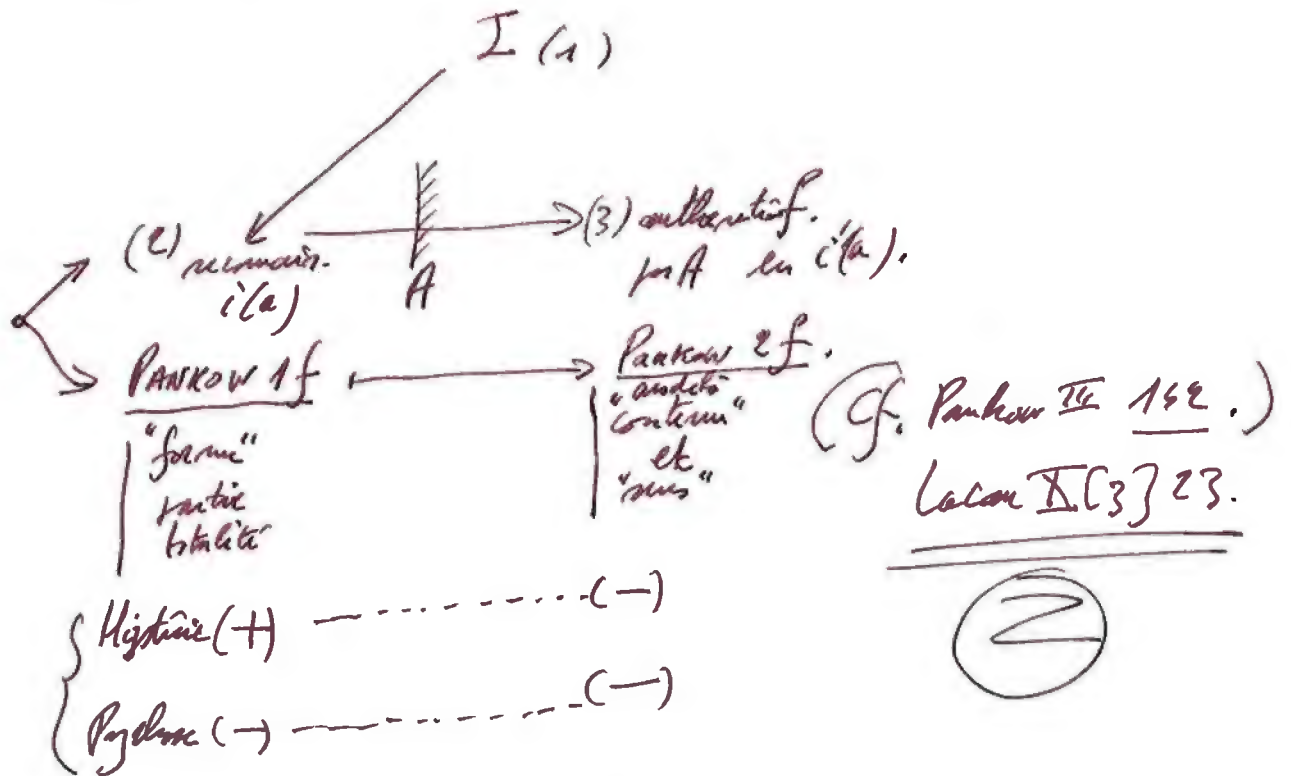 I (1)
(2)
i(a)
A
(3) authentif.
par A en i'(a).
PANKOW 1 f
"forme"
partie
totalité
Pankow 2 f.
contenu"
et
"sens"
(Cf. Pankow III 162.)
Lacan X [3] 23.
Z
Hystérie (+) (—)
Psychose (—) (—)